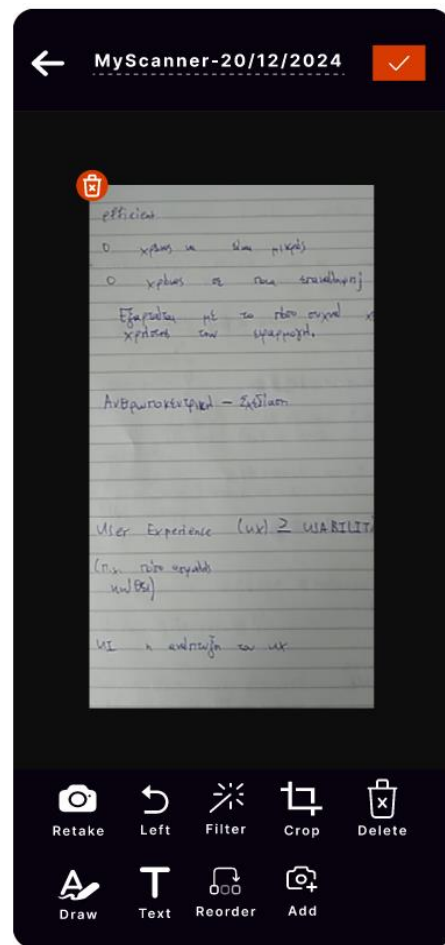 MyScanner-20/12/2024
efficient
Ο χρόνος να είναι μικρός
Ο χρόνος σε ποια επανάληψη
Εξαρτάται με το πόσο συχνά
χρήστης την εφαρμογή.
Ανθρωποκεντρική - Σχεδίαση
User Experience (UX) ≥ USABILIT
(π.χ. πόσο ασφαλής
νιώθει)
UI η ανάπτυξη του UX
Retake
Left
Filter
Crop
Delete
Draw
Text
Reorder
Add